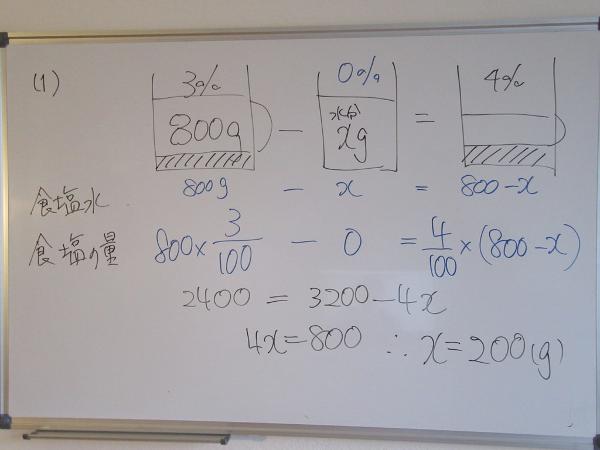 (1) 3% 0% 4%
800g − 水分 xg =
食塩水 800g − x = 800−x
食塩の量 800×3/100 − 0 = 4/100×(800−x)
2400 = 3200−4x
4x=800 ∴ x=200(g)